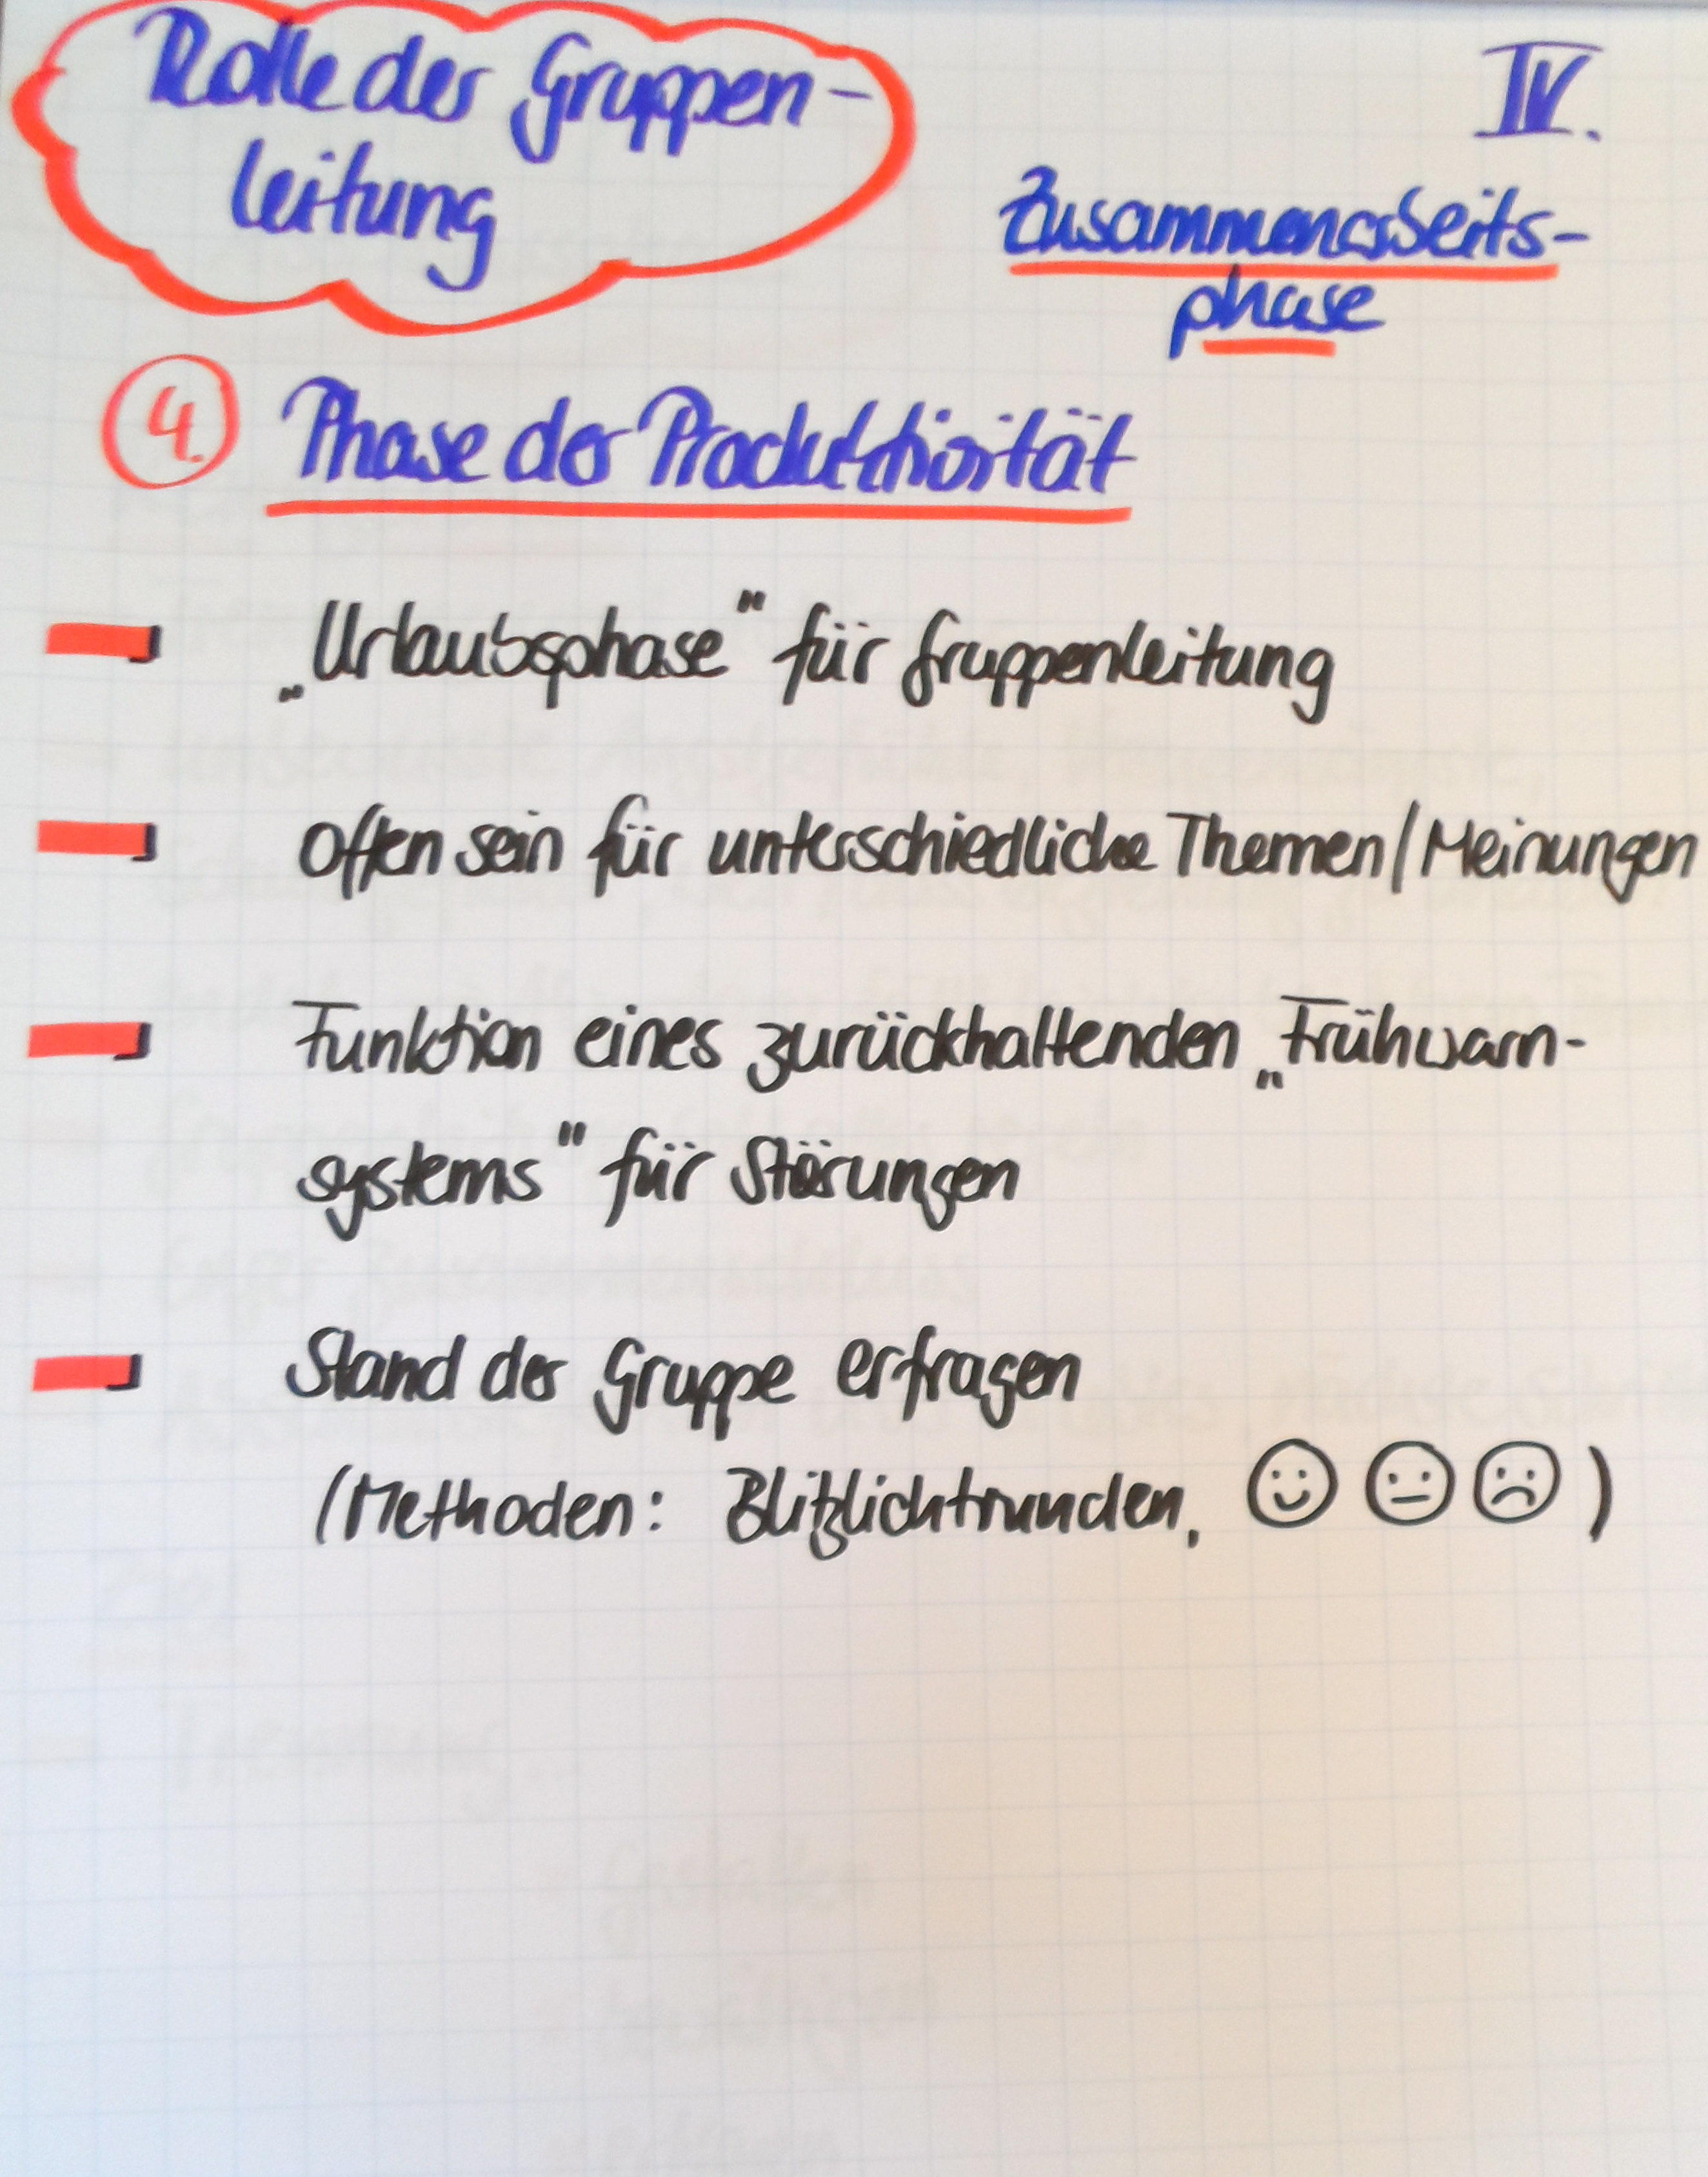 Rolle der Gruppen-
leitung
IV.
Zusammenarbeits-
phase
4. Phase der Produktivität
„Urlaubsphase“ für Gruppenleitung
Offen sein für unterschiedliche Themen/Meinungen
Funktion eines zurückhaltenden „Frühwarn-
systems“ für Störungen
Stand der Gruppe erfragen
(Methoden: Blitzlichtrunden, ☺ 😐 ☹)